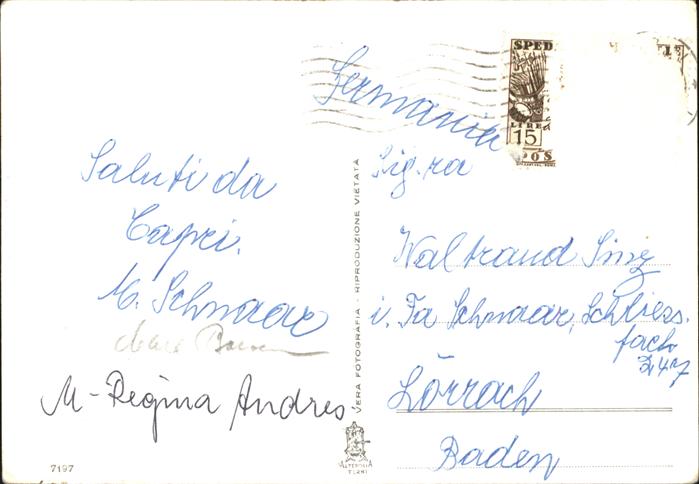 Saluti da
Capri.
M. Schnaar
M-Regina Andres
7197
VERA FOTOGRAFIA - RIPRODUZIONE VIETATA
TERNI
SPED
LIRE
15
Germania
Sig.ra
Waltraud Sinz
i. Fa Schnaar, Schliess-
fach
Lörrach
Baden